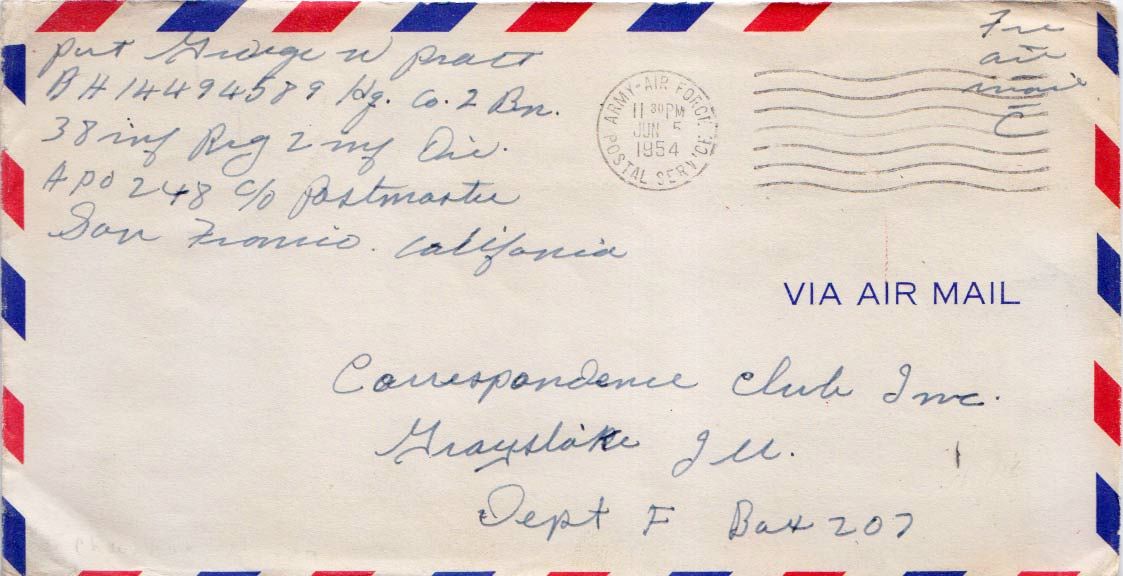 pvt George W Pratt
BH 14494589 Hq. Co. 2 Bn.
38 inf Reg 2 inf Div.
APO 248 c/o Postmaster
San Francico. California
Free
air
mail
ARMY-AIR FORCE
11 30 PM
JUN 5
1954
POSTAL SERVICE
VIA AIR MAIL
Correspondence Club Inc.
Grayslake Ill.
Dept F Box 207